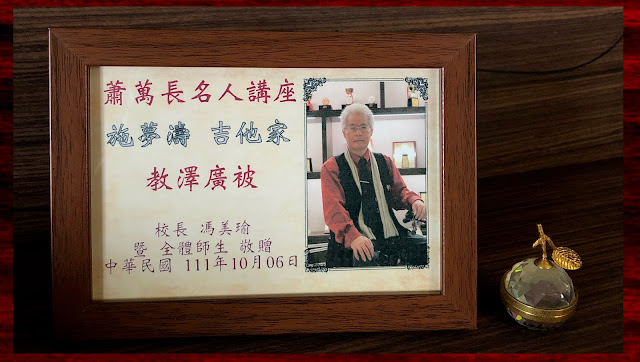 蕭萬長名人講座
施夢濤 吉他家
教澤廣被
校長 馮美瑜
暨 全體師生 敬贈
中華民國 111年10月06日